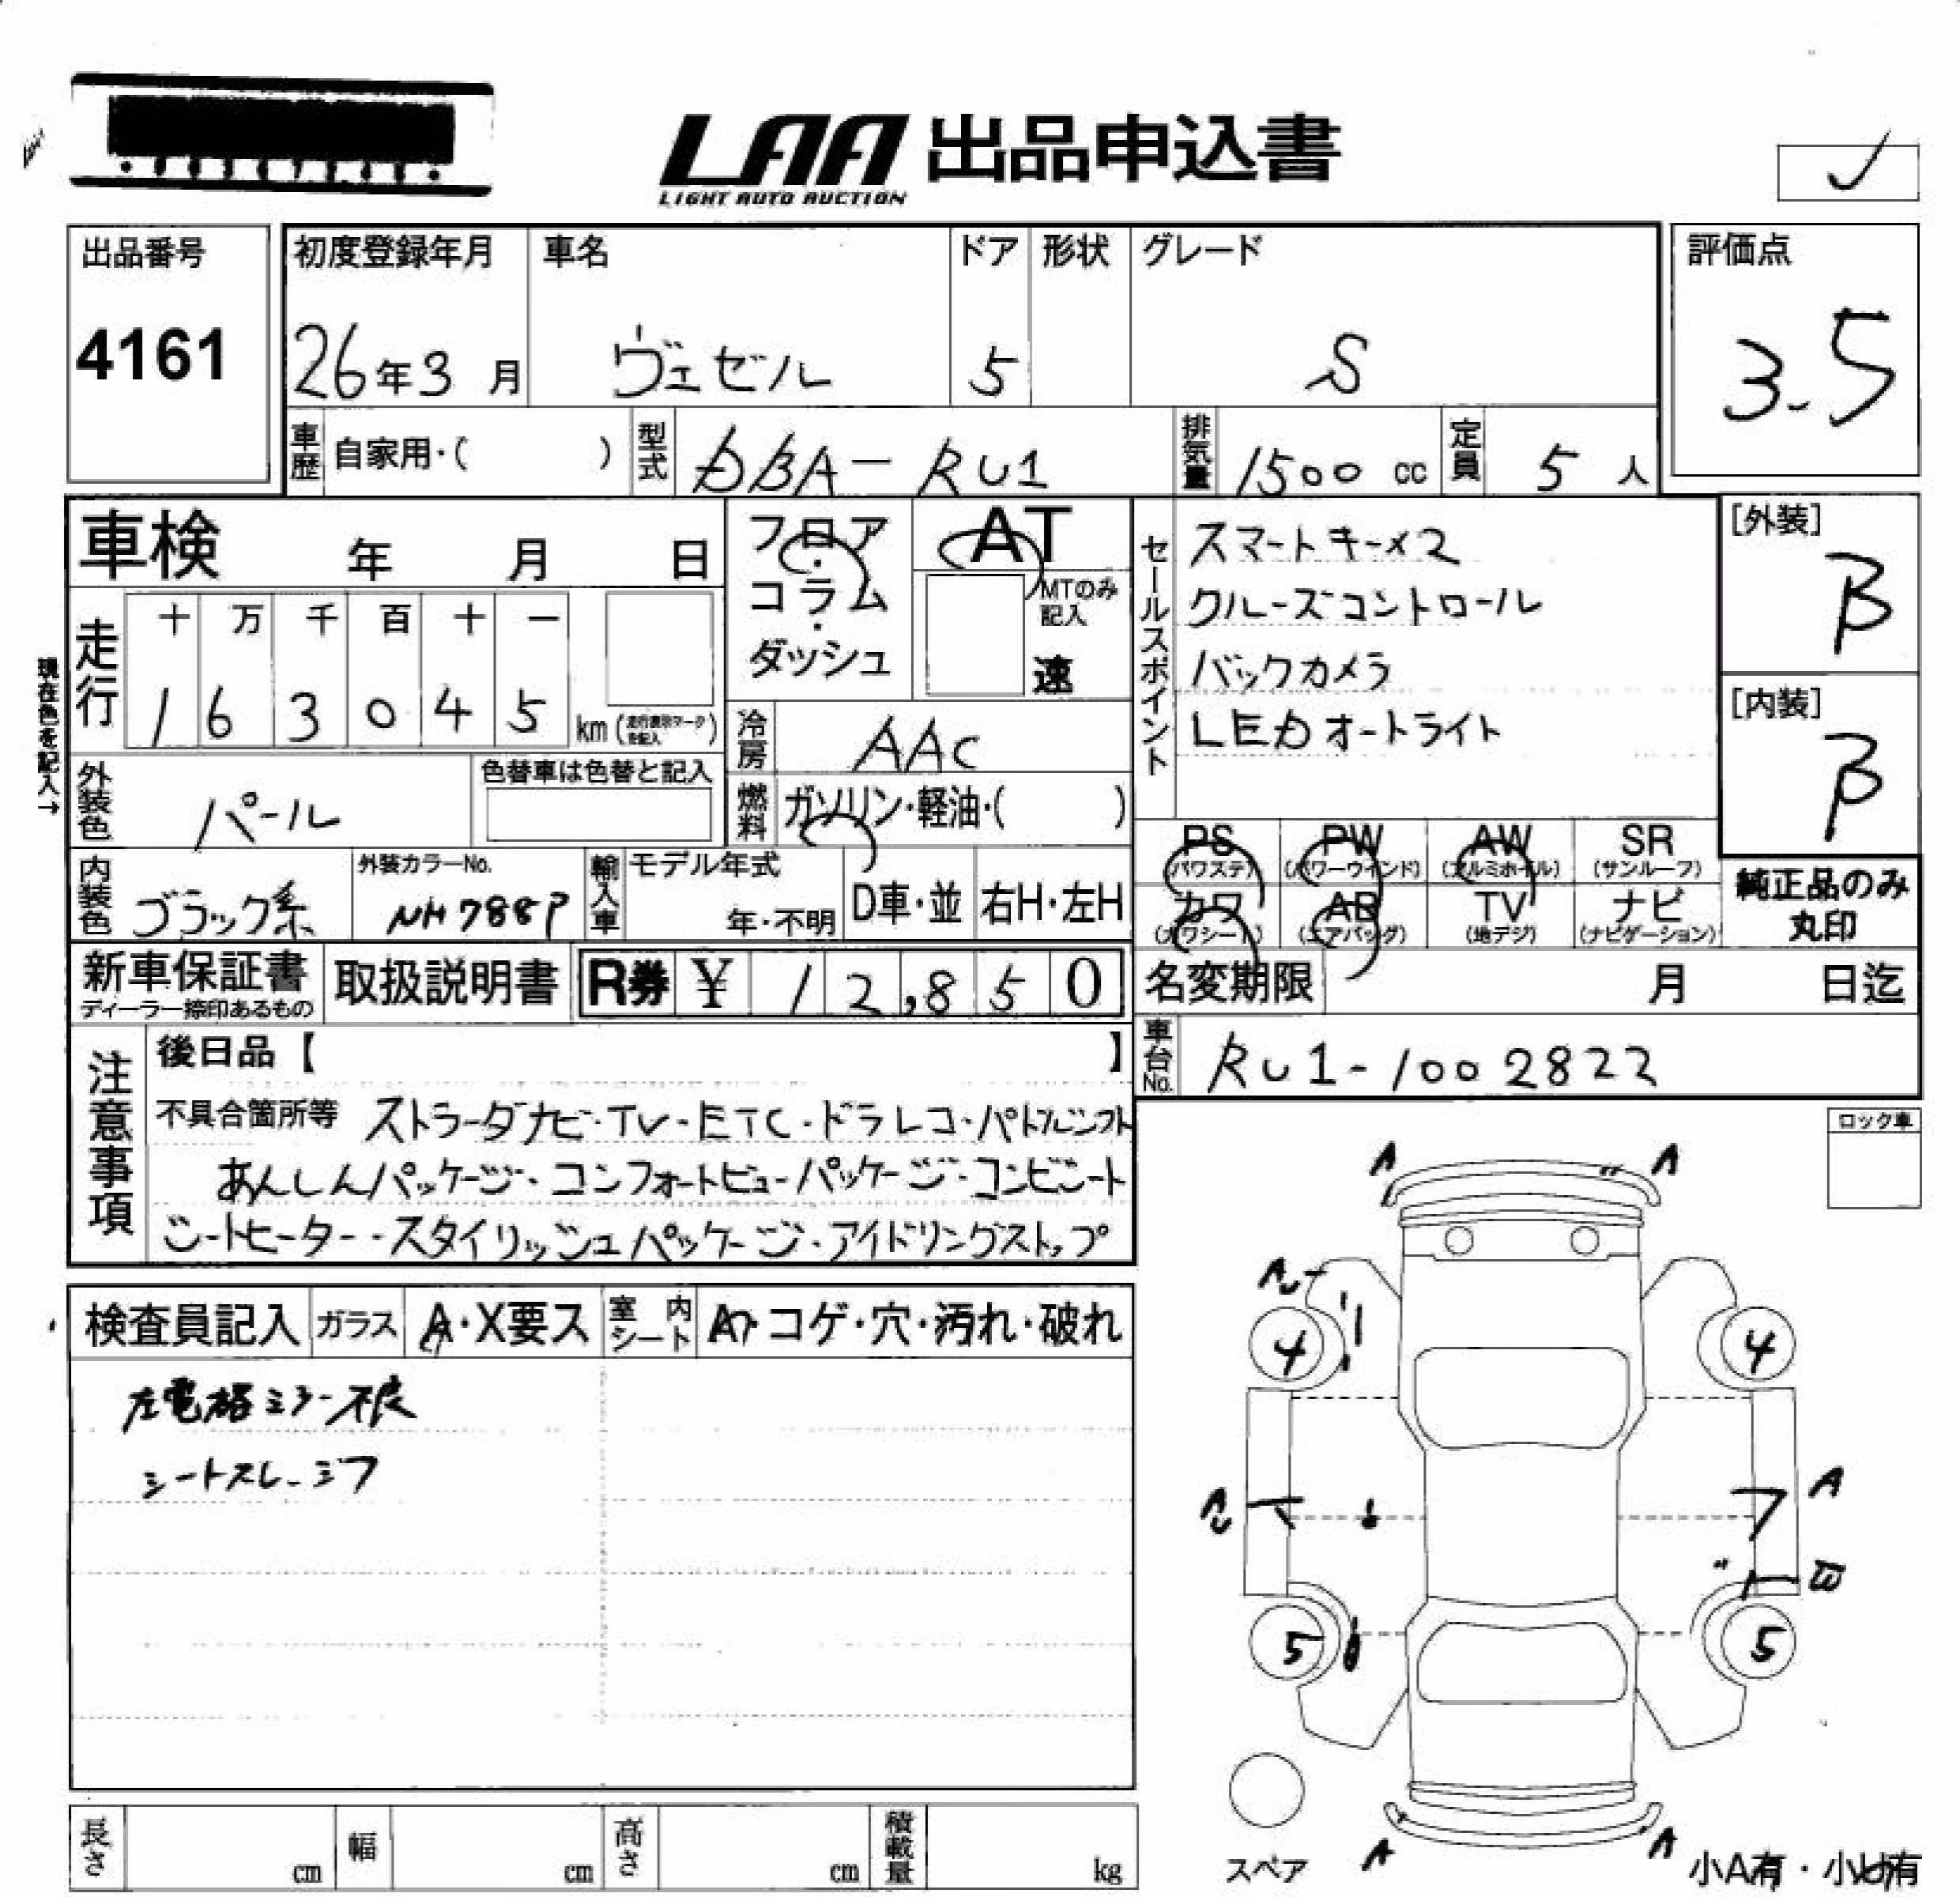 LAA 出品申込書
LIGHT AUTO AUCTION
出品番号
4161
初度登録年月
26年3月
車名
ヴェゼル
ドア
5
形状
グレード
S
評価点
3.5
車歴 自家用・( )
型式 DBA-RU1
排気量 1500 cc
定員 5 人
車検 年 月 日
フロア・コラム・ダッシュ
AT
MTのみ記入
速
走行 十 万 千 百 十 一
1 6 3 0 4 5 km (走行表示マークを記入)
現在色を記入→
冷房 AAC
外装色 パール
色替車は色替と記入
燃料 ガソリン・軽油・( )
内装色 ブラック系
外装カラーNo.
NH788P
輸入車
モデル年式
年・不明
D車・並
右H・左H
セールスポイント
スマートキー×2
クルーズコントロール
バックカメラ
LEDオートライト
[外装]
B
[内装]
B
PS (パワステ) PW (パワーウインド) AW (アルミホイル) SR (サンルーフ)
カワ (カワシート) AB (エアバッグ) TV (地デジ) ナビ (ナビゲーション)
純正品のみ丸印
新車保証書
ディーラー捺印あるもの
取扱説明書
R券 ¥ 12,850
名変期限 月 日迄
車台No. RU1-1002822
注意事項
後日品【 】
不具合箇所等 ストラーダナビ・TV・ETC・ドラレコ・パドルシフト
あんしんパッケージ・コンフォートビューパッケージ・コンビシート
シートヒーター・スタイリッシュパッケージ・アイドリングストップ
ロック車
検査員記入 ガラス A・X要ス 室内シート コゲ・穴・汚れ・破れ
左電格ミラー不良
シートスレ・シワ
A A
4 4
A
5 5
A A
スペア
小A有・小U有
長さ cm 幅 cm 高さ cm 積載量 kg